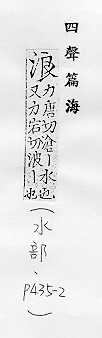 四聲篇海
浪
力唐切滄丨水
又力宕切波丨也
(水部、P435-2)